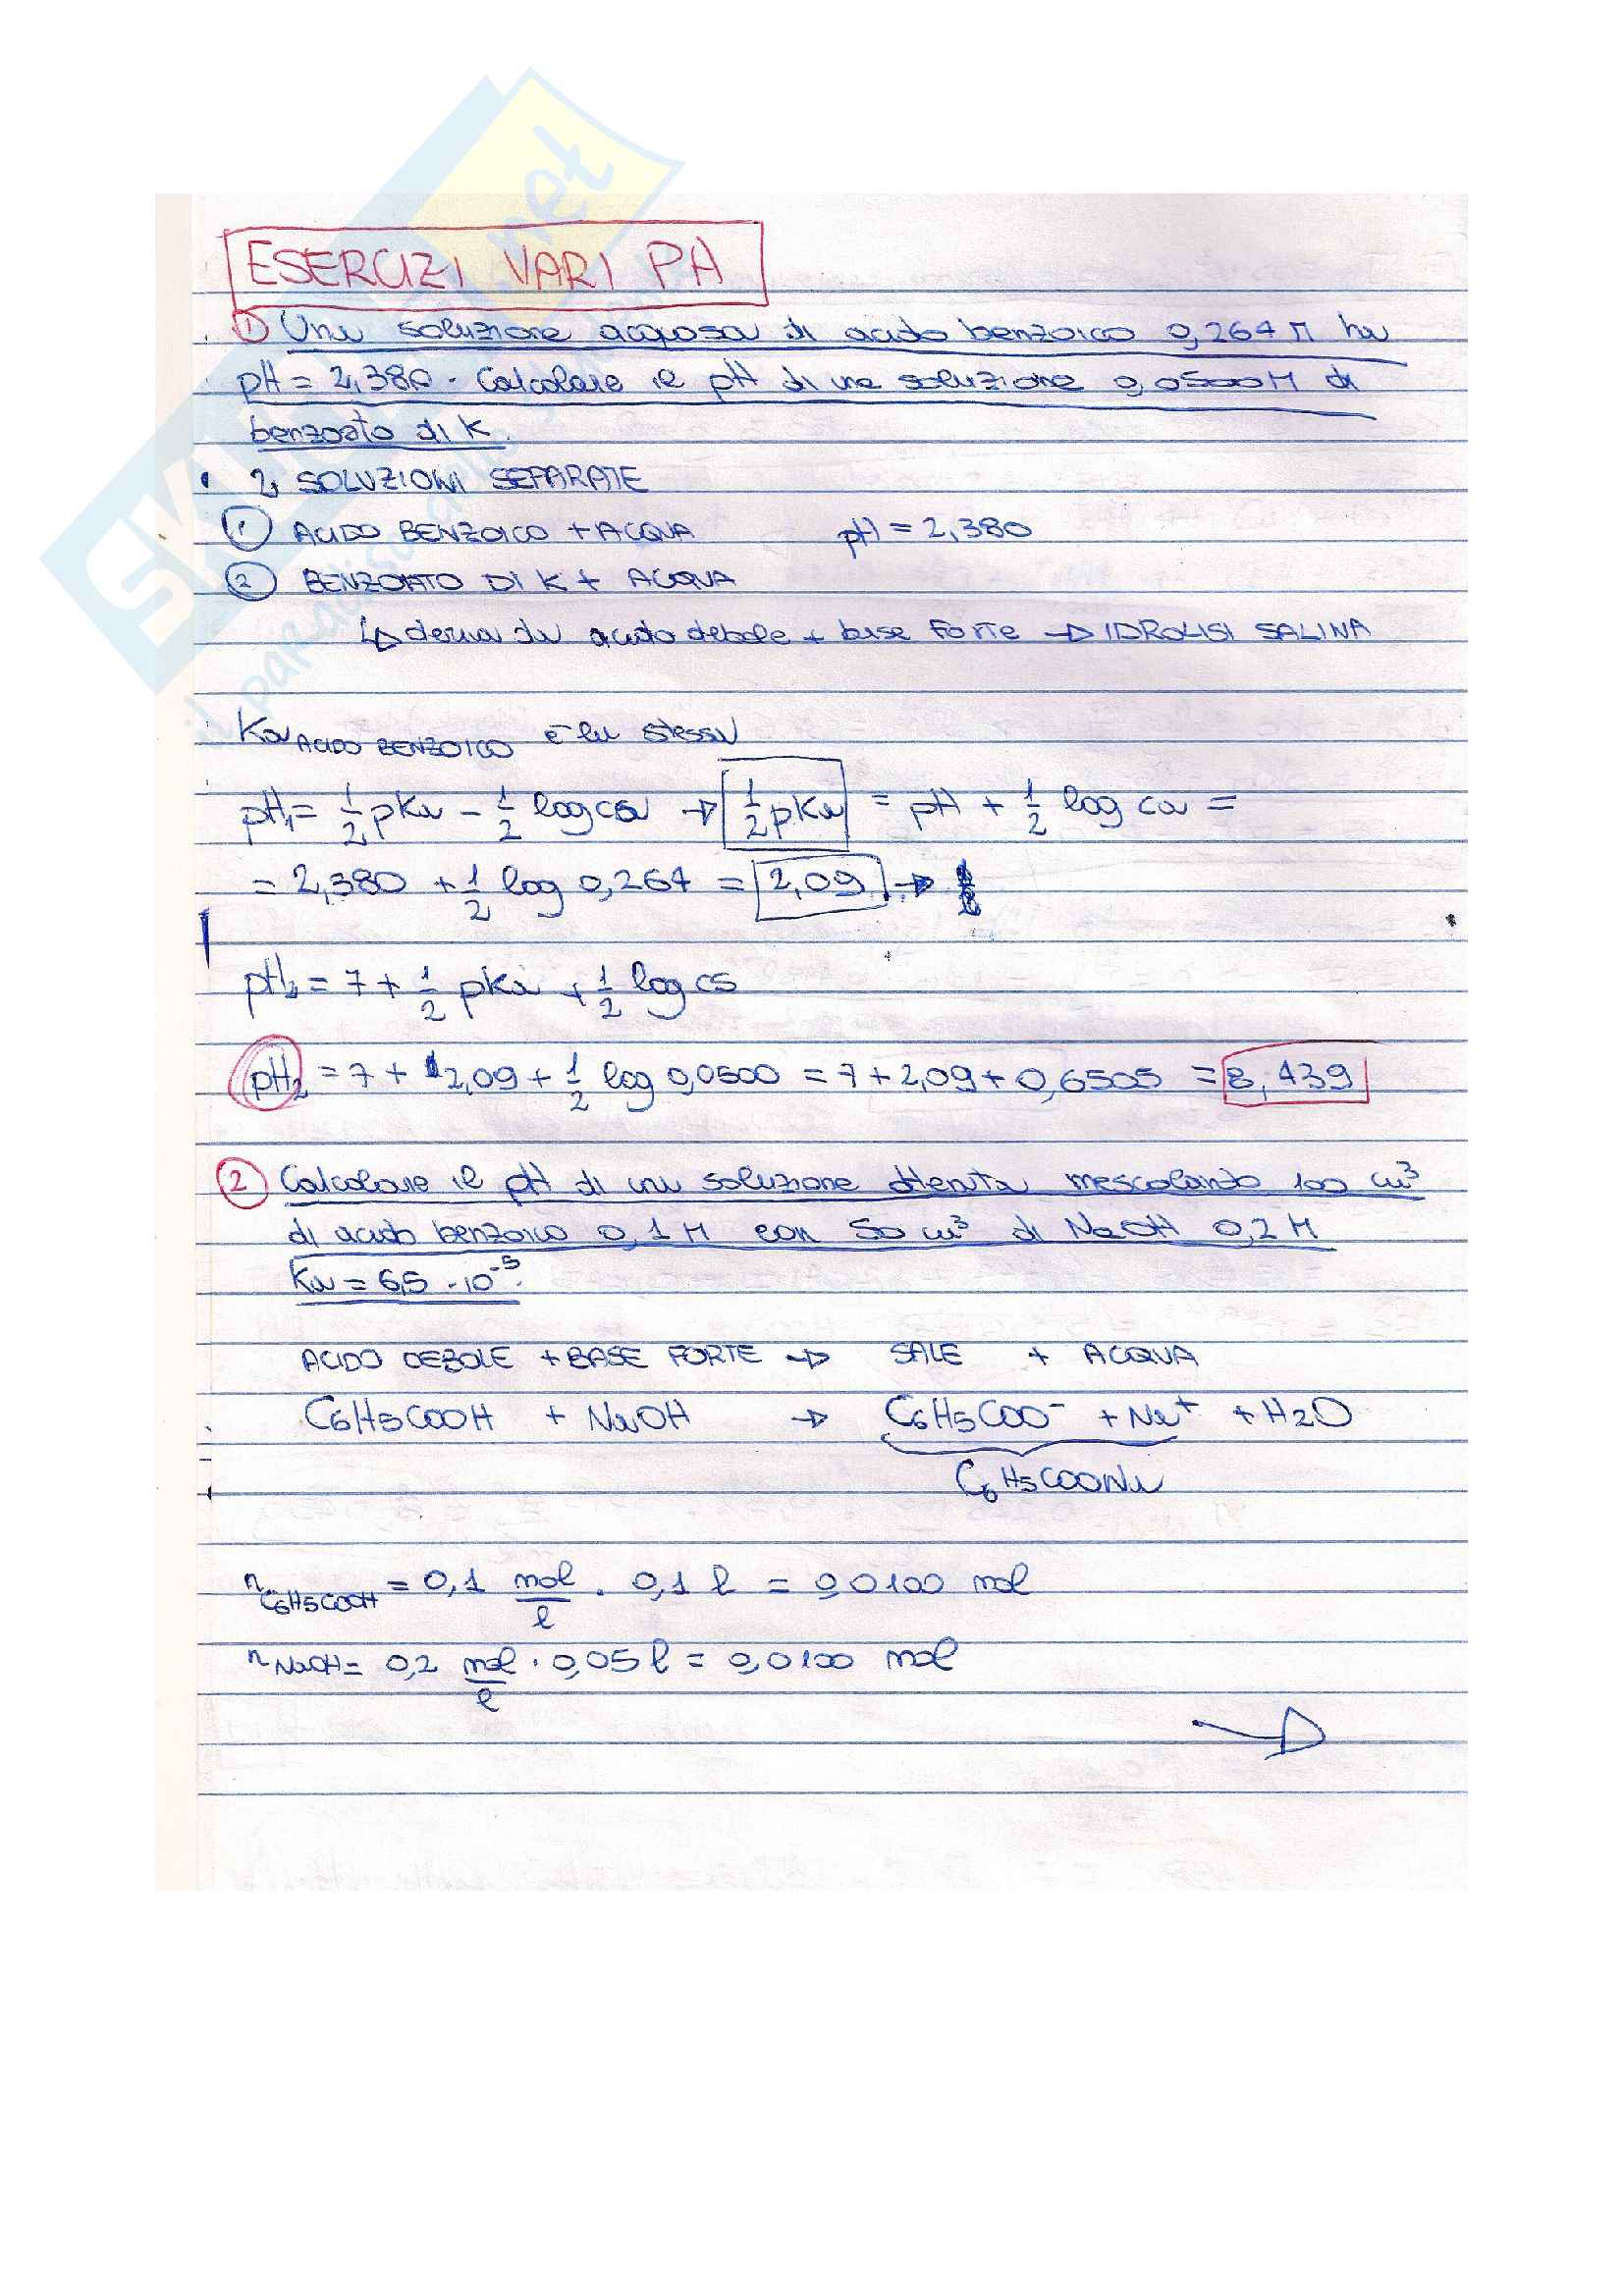 ESERCIZI VARI PH
① Una soluzione acquosa di acido benzoico 0,264 M ha
pH = 2,380. Calcolare il pH di una soluzione 0,0500M di
benzoato di K.
• 2 SOLUZIONI SEPARATE
① ACIDO BENZOICO + ACQUA pH = 2,380
② BENZOATO DI K + ACQUA
↳ deriva da acido debole + base FORTE → IDROLISI SALINA
Ka ACIDO BENZOICO è la stessa
pH₁ = 1/2 pKa - 1/2 log ca → 1/2 pKa = pH + 1/2 log ca =
= 2,380 + 1/2 log 0,264 = 2,09 →
pH₂ = 7 + 1/2 pKa + 1/2 log cs
pH₂ = 7 + 2,09 + 1/2 log 0,0500 = 7 + 2,09 + 0,6505 = 8,439
② Calcolare il pH di una soluzione ottenuta mescolando 100 cm³
di acido benzoico 0,1 M con 50 cm³ di NaOH 0,2 M
Ka = 6,5 · 10⁻⁵.
ACIDO DEBOLE + BASE FORTE → SALE + ACQUA
C6H5COOH + NaOH → C6H5COO⁻ + Na⁺ + H2O
C6H5COONa
n C6H5COOH = 0,1 mol/l · 0,1 l = 0,0100 mol
n NaOH = 0,2 mol/l · 0,05 l = 0,0100 mol